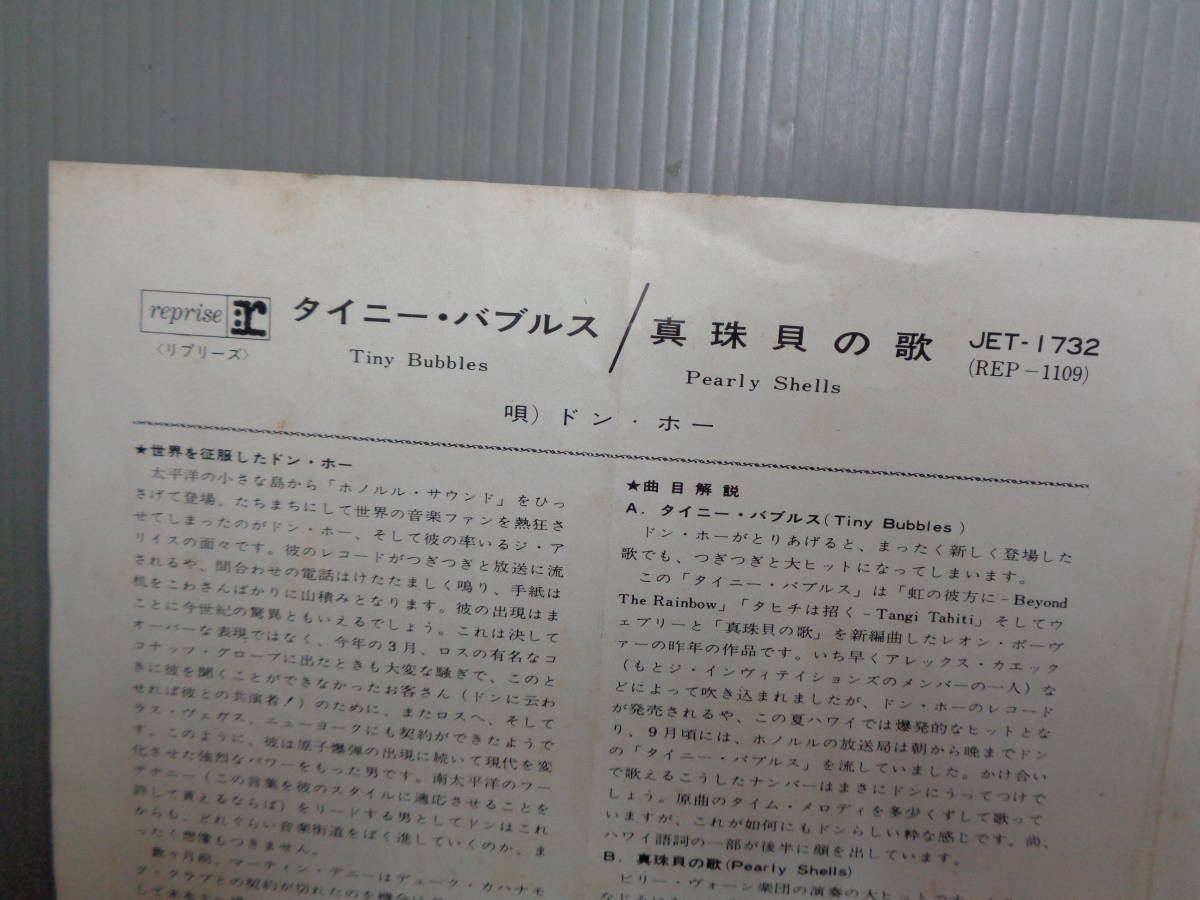 reprise r
〈リプリーズ〉
タイニー・バブルス/真珠貝の歌
Tiny Bubbles
Pearly Shells
JET-1732
(REP-1109)
唄)ドン・ホー
★世界を征服したドン・ホー
太平洋の小さな島から「ホノルル・サウンド」をひっ
さげて登場、たちまちにして世界の音楽ファンを熱狂さ
せてしまったのがドン・ホー、そして彼の率いるジ・ア
リイスの面々です。彼のレコードがつぎつぎと放送に流
されるや、問合わせの電話はけたたましく鳴り、手紙は
机をこわさんばかりに山積みとなります。彼の出現はま
ことに今世紀の驚異ともいえるでしょう。これは決して
オーバーな表現ではなく、今年の3月、ロスの有名なコ
コナッツ・グローブに出たときも大変な騒ぎで、このと
きに彼を聞くことができなかったお客さん(ドンに云わ
せれば彼との共演者!)のために、またロスへ、そして
ラス・ヴェガス、ニューヨークにも契約ができたようで
す。このように、彼は原子爆弾の出現に続いて現代を変
化させた強烈なパワーをもった男です。南太平洋のフー
テナニー(この言葉を彼のスタイルに適応させることを
許して貰えるならば)をリードする男としてドンはこれ
からも、どれぐらい音楽街道をばく進していくのか、ま
ったく想像もつきません。
数ヶ月前、マーティン・デニーはデューク・カハナモ
ク・クラブとの契約が切れたのを機会に
★曲目解説
A. タイニー・バブルス(Tiny Bubbles)
ドン・ホーがとりあげると、まったく新しく登場した
歌でも、つぎつぎと大ヒットになってしまいます。
この「タイニー・バブルス」は「虹の彼方に-Beyond
The Rainbow」「タヒチは招く-Tangi Tahiti」そしてウ
ェブリーと「真珠貝の歌」を新編曲したレオン・ポーヴ
ァーの昨年の作品です。いち早くアレックス・カエック
(もとジ・インヴィテイションズのメンバーの一人)な
どによって吹き込まれましたが、ドン・ホーのレコード
が発売されるや、この夏ハワイでは爆発的なヒットとな
り、9月頃には、ホノルルの放送局は朝から晩までドン
の「タイニー・バブルス」を流していました。かけ合い
で歌えるこうしたナンバーはまさにドンにうってつけで
しょう。原曲のタイム・メロディを多少くずして歌って
いますが、これが如何にもドンらしい粋な感じです。尚、
ハワイ語詞の一部が後半に顔を出しています。
B. 真珠貝の歌(Pearly Shells)
ビリー・ヴォーン楽団の演奏の大ヒットで